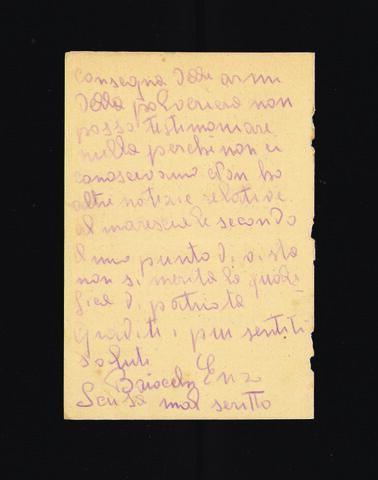 consegna delle armi
della polveriera non
posso testimoniare
nulla perche non ci
conoscevamo Non ho
altre notizie relative
al maresciale secondo
il mio punto di vista
non si merita la quali
fica di patriota
Graditi i piu sentiti
saluti
Enzo
Scusa mal scritto